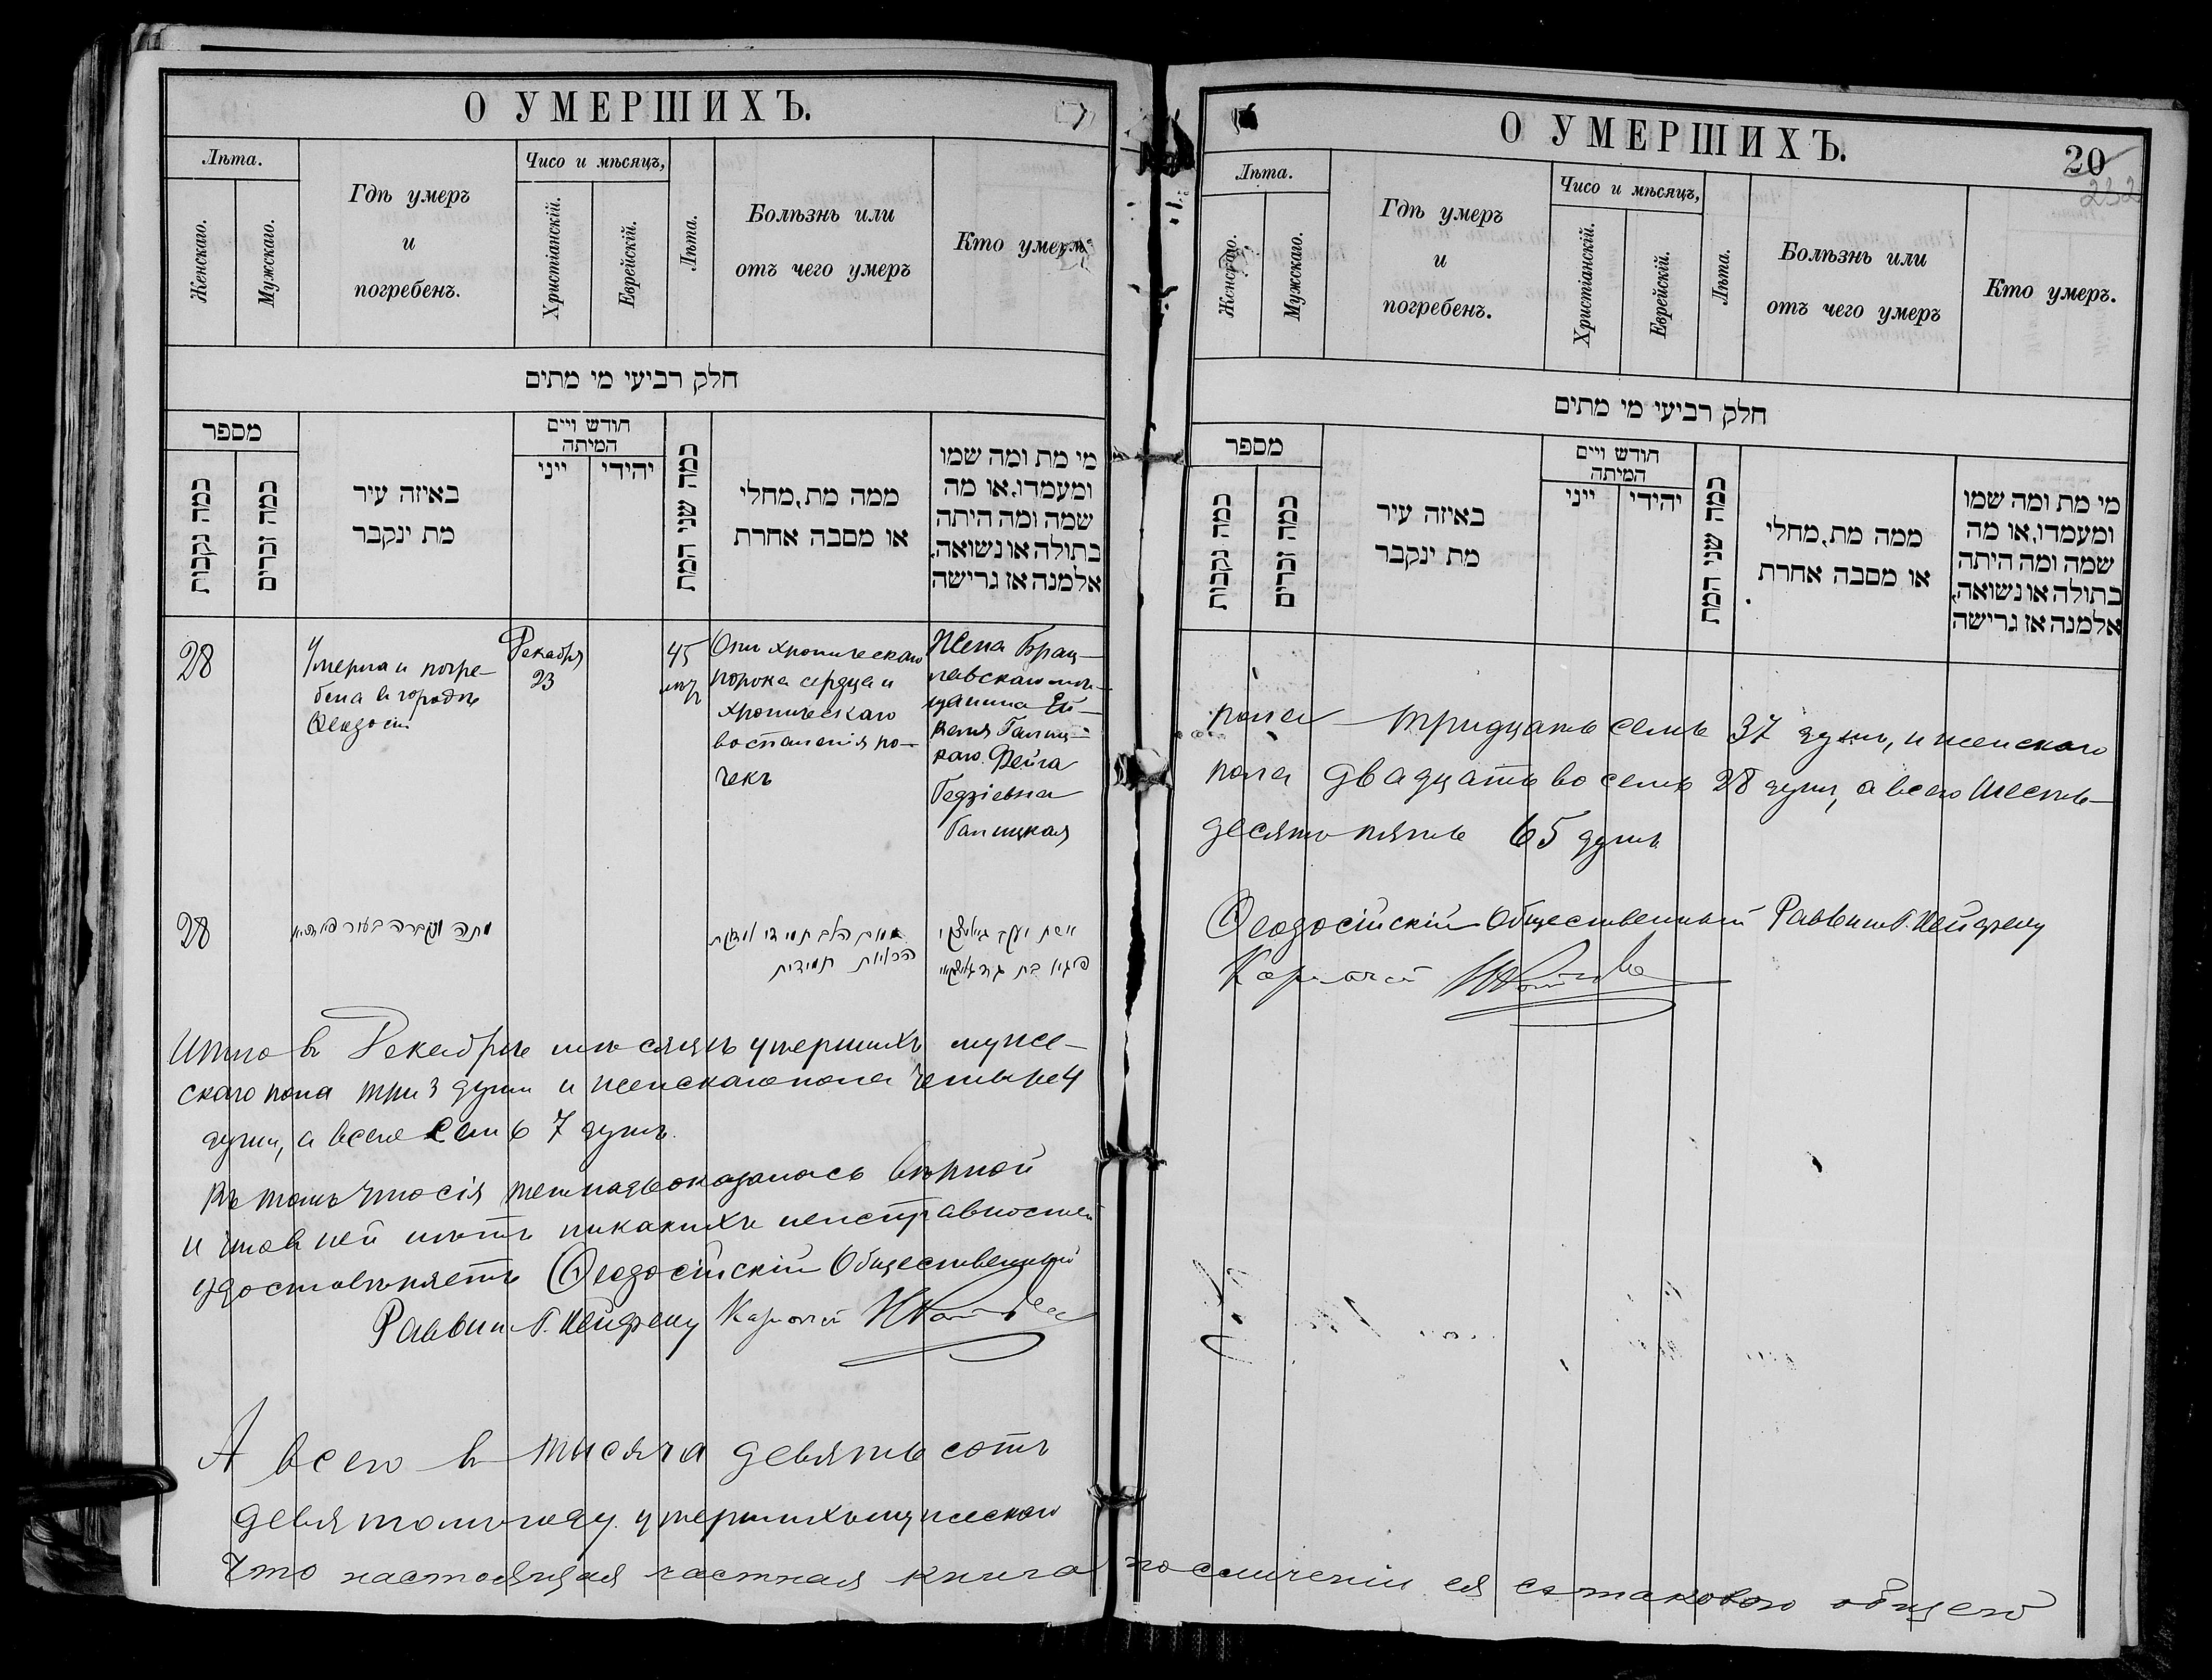 О УМЕРШИХЪ.
Лѣта.
Женскаго.
Мужскаго.
Гдѣ умеръ
и
погребенъ.
Чисо и мѣсяцъ,
Христіанскій.
Еврейскій.
Лѣта.
Болѣзнь или
отъ чего умеръ
Кто умеръ.
חלק רביעי מי מתים
מספר
כמה נקבות
כמה זכרים
באיזה עיר
מת ינקבר
חודש ויים
המיתה
ייני
יהידי
כמה שני המת
ממה מת, מחלי
או מסבה אחרת
מי מת ומה שמו
ומעמדו, או מה
שמה ומה היתה
בתולה או נשואה,
אלמנה אז גרישה
28
Умерла и погре-
бена въ городѣ
Ѳеодосіи
Декабря
23
45
лѣтъ
Отъ хроническаго
порока сердца и
хроническаго
воспаленія по-
чекъ
Жена Брац-
лавскаго мѣ-
щанина
Галиц-
каго Фейга
Галицкая
28
מתה ונקברה בעיר
תמידית
אשת יעקב
Итого въ Декабрѣ мѣсяцѣ умершихъ муже-
скаго пола три 3 души и женскаго пола четыре 4
души, а всего семь 7 душъ.
Въ томъ что сія тетрадь оказалась вѣрной
и что въ ней нѣтъ никакихъ неисправностей
удостовѣряетъ Ѳеодосійскій Общественный
Раввинъ
А всего въ тысяча девятьсотъ
девятомъ году умершихъ мужескаго
О УМЕРШИХЪ.
20
232
Лѣта.
Женскаго.
Мужскаго.
Гдѣ умеръ
и
погребенъ.
Чисо и мѣсяцъ,
Христіанскій.
Еврейскій.
Лѣта.
Болѣзнь или
отъ чего умеръ
Кто умеръ.
חלק רביעי מי מתים
מספר
כמה נקבות
כמה זכרים
באיזה עיר
מת ינקבר
חודש ויים
המיתה
ייני
יהידי
כמה שני המת
ממה מת, מחלי
או מסבה אחרת
מי מת ומה שמו
ומעמדו, או מה
שמה ומה היתה
בתולה או נשואה,
אלמנה אז גרישה
пола тридцать семь 37 душъ, и женскаго
пола двадцать восемь 28 душъ, а всего шесть-
десятъ пять 65 душъ
Ѳеодосійскій Общественный Раввинъ
Что настоящая частная книга по сличеніи ея съ таковою общею